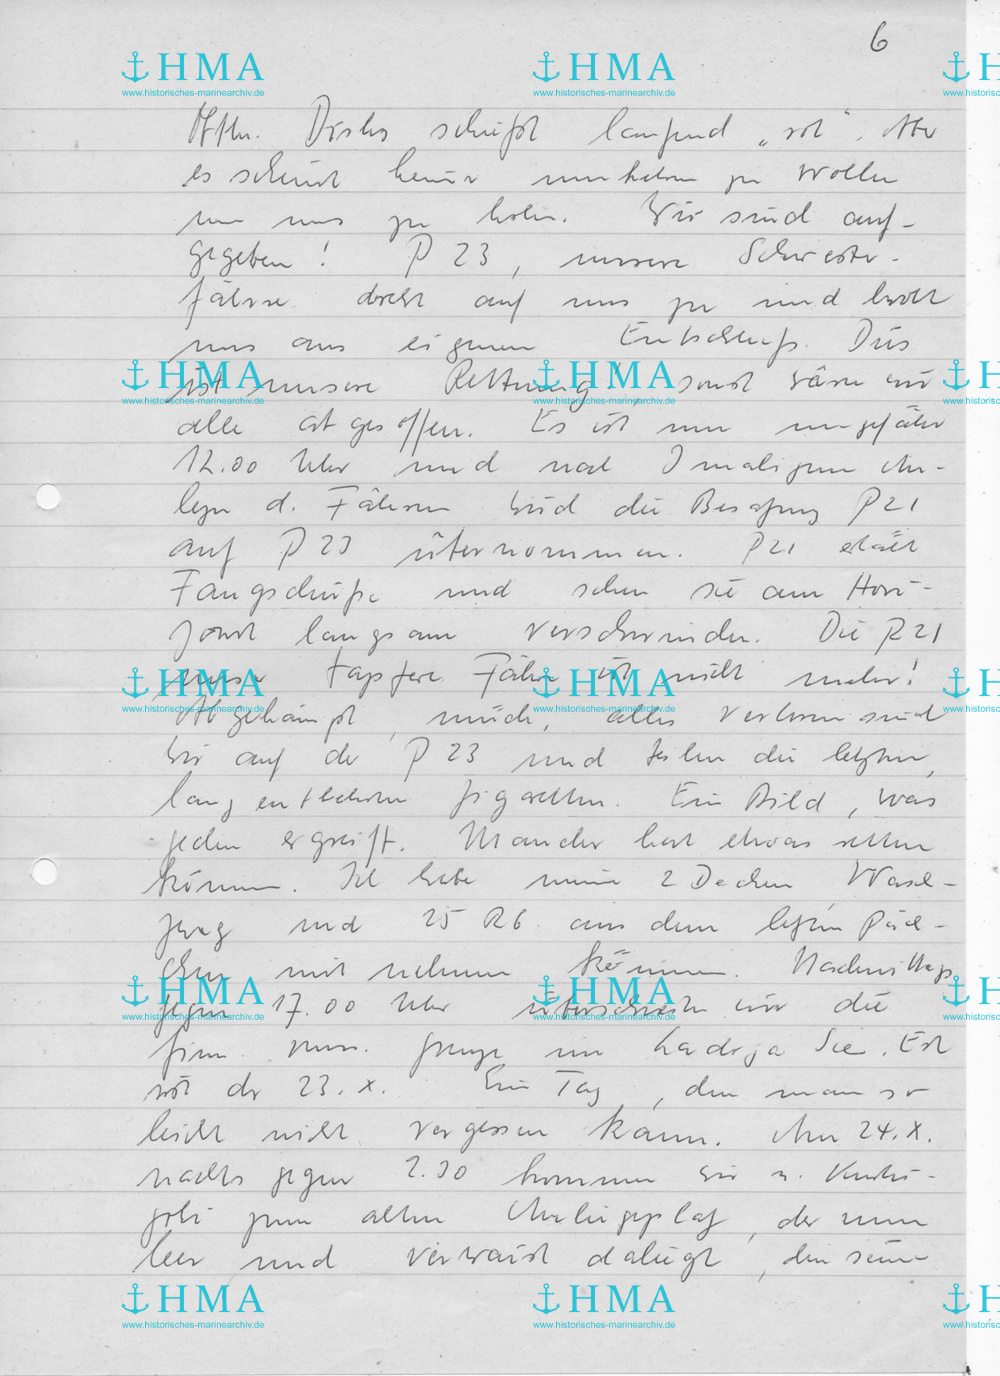 6
Offz. Dieser schießt laufend „rot". Aber
es scheint keiner umkehren zu wollen
um uns zu holen. Wir sind auf-
gegeben! P 23, unsere Schwester-
fähre dreht auf uns zu und holt
uns aus eigenem Entschluß. Dies
ist unsere Rettung, sonst wären wir
alle abgesoffen. Es ist nun ungefähr
12.00 Uhr und nach 3 maligem An-
legen d. Fähren wird die Besatzung P 21
auf P 23 übernommen. P 21 erhält
Fangschüße und sehen sie am Hori-
zont langsam verschwinden. Die P 21
unsere tapfere Fähre ist nicht mehr!
Abgekämpft, müde, alles verloren sind
wir auf der P 23 und teilen die letzten,
lang entbehrten Zigaretten. Ein Bild, was
jeden ergreift. Mancher hat etwas retten
können. Ich habe meine 2 Decken Wasch-
zeug und 25 R6 aus dem letzten Päck-
chen mitnehmen können. Nachmittags
gegen 17.00 Uhr überschreiten wir die
finn. russ. Grenze im Ladoga See. Erst
ist der 23. X. Ein Tag, den man so
leicht nicht vergessen kann. Am 24. X.
nachts gegen 2.30 kommen wir n.
zum alten Anlegeplatz, der nun
leer und verwaist daliegt, denn seine
HMA
www.historisches-marinearchiv.de